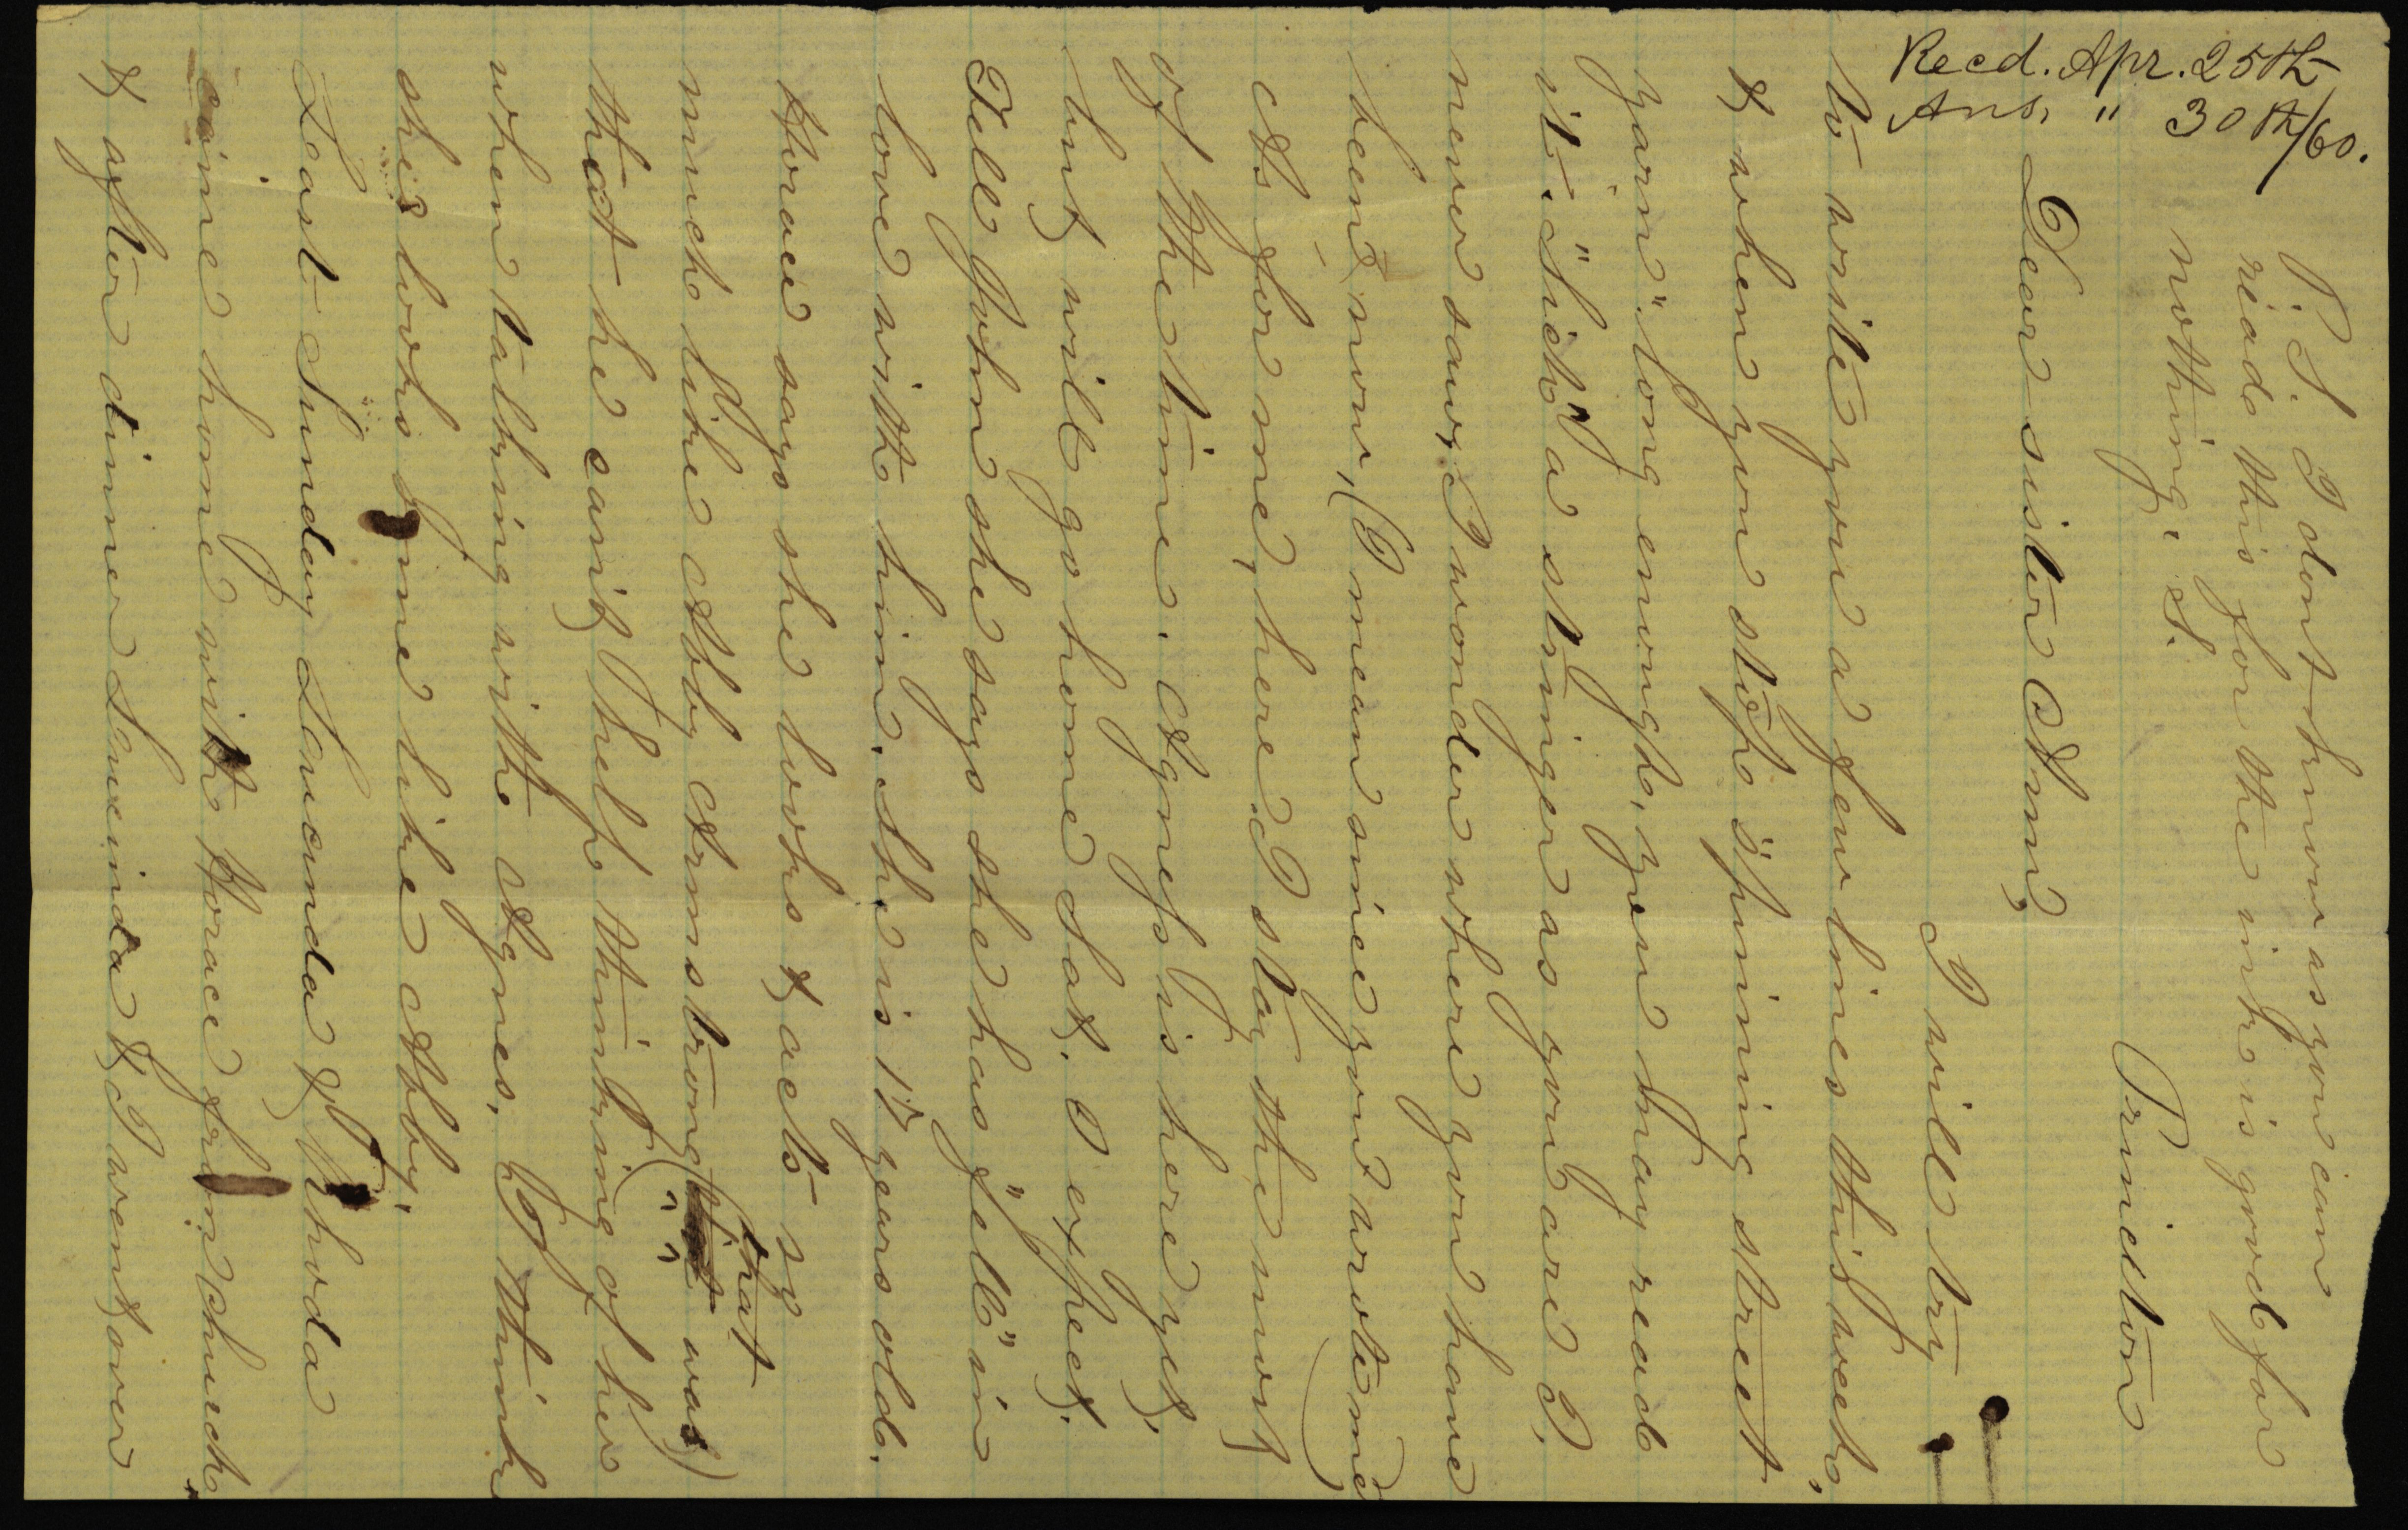 Recd. Apr. 25th
Ans. " 30th/60.
P. S. I dont know as you can
read this for the ink is good for
nothing. A.
Princeton
Dear sister Ann,
I will try
to write you a few lines this week,
& when you stop "spinning street
yarn" long enough, you may read
it. "Sich" a stringer as you are I
never saw, I wonder where you have
been now, (I mean since you wrote me)
As for me, here I stay the most
of the time. Agness is here yet,
but will go home Sat. I expect.
Tell John she says she has "fell" in
love with him. She is 17 years old.
Horace says she looks & acts so
much like Abby Armstrong (that was)
that he cant help thinking of her
when talking with Agnes. I think
she looks some like Abby.
Last Sunday Lovinda & Rhoda
came home with Horace from church
& after dinner Lovinda & I went over